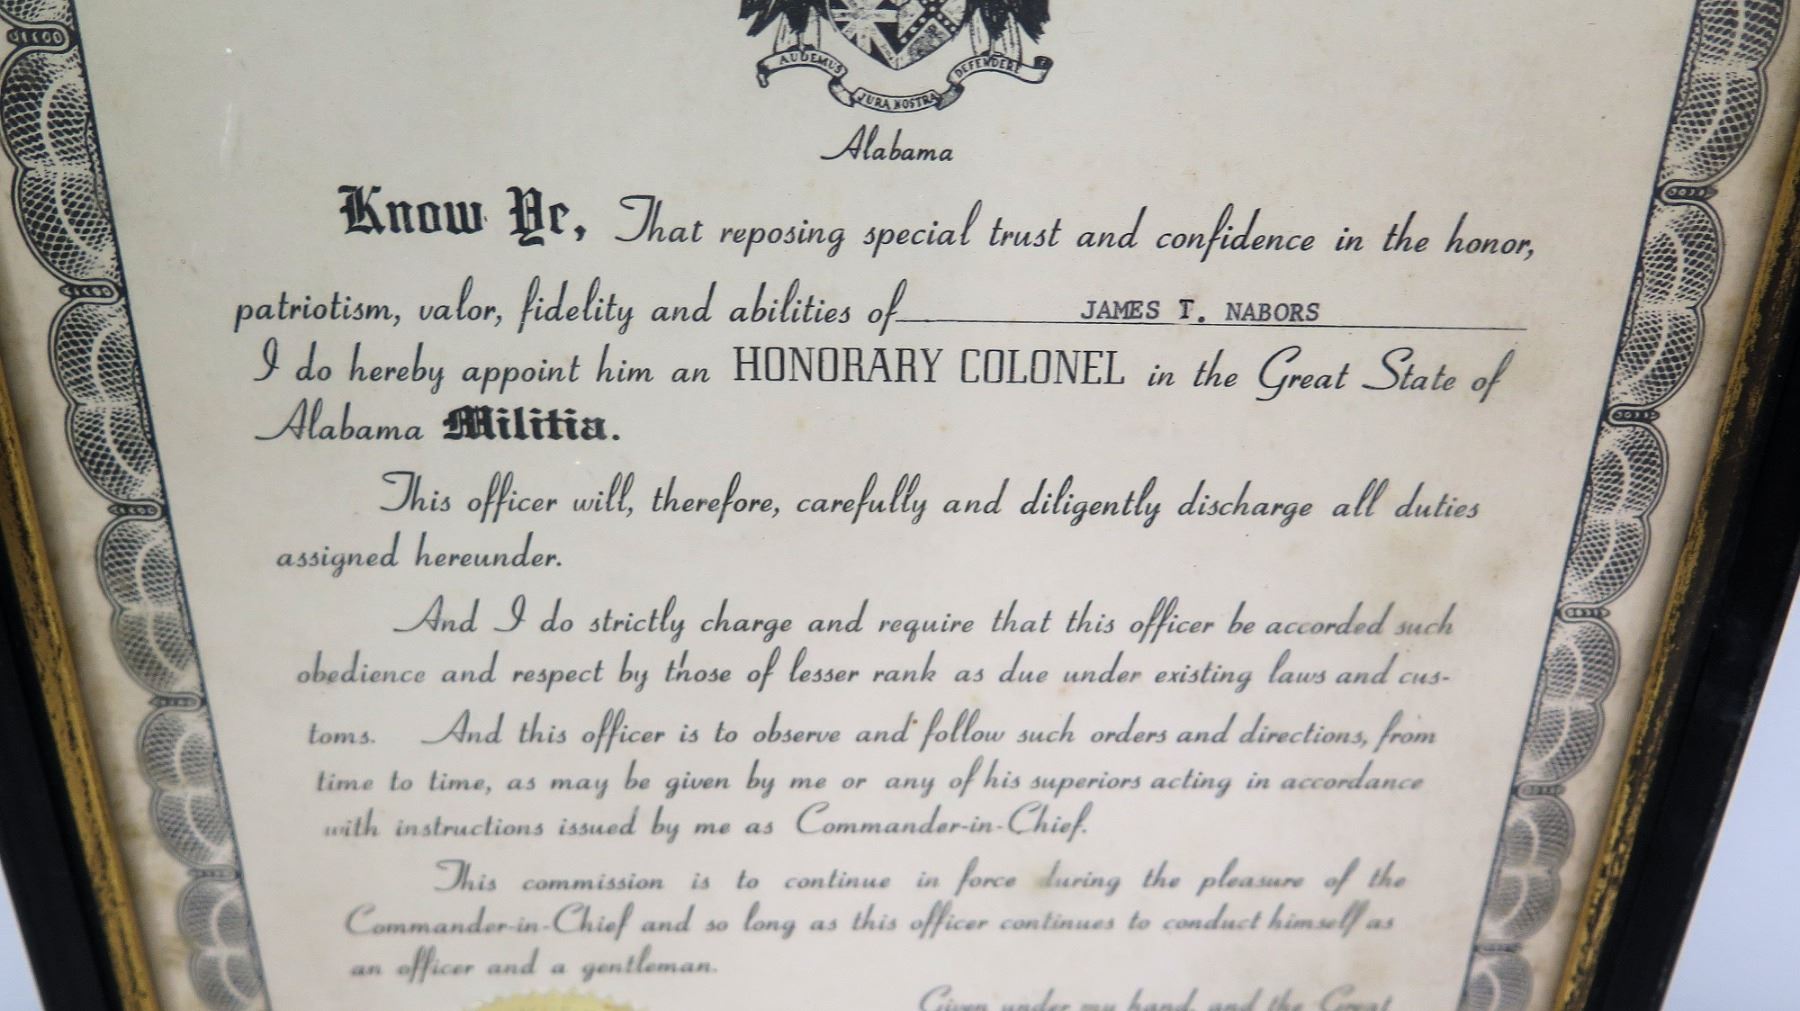 AUDEMUS JURA NOSTRA DEFENDERE
Alabama
Know Ye, That reposing special trust and confidence in the honor,
patriotism, valor, fidelity and abilities of JAMES T. NABORS
I do hereby appoint him an HONORARY COLONEL in the Great State of
Alabama Militia.
This officer will, therefore, carefully and diligently discharge all duties
assigned hereunder.
And I do strictly charge and require that this officer be accorded such
obedience and respect by those of lesser rank as due under existing laws and cus-
toms. And this officer is to observe and follow such orders and directions, from
time to time, as may be given by me or any of his superiors acting in accordance
with instructions issued by me as Commander-in-Chief.
This commission is to continue in force during the pleasure of the
Commander-in-Chief and so long as this officer continues to conduct himself as
an officer and a gentleman.
Given under my hand and the Great